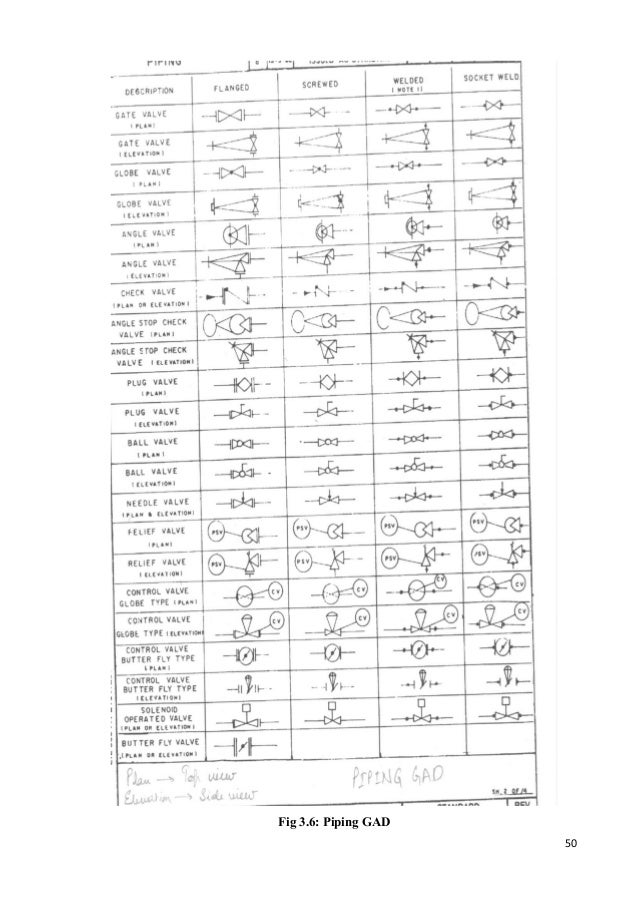 PIPING
DESCRIPTION FLANGED SCREWED WELDED SOCKET WELD
( NOTE 1)
GATE VALVE
( PLAN )
GATE VALVE
( ELEVATION )
GLOBE VALVE
( PLAN )
GLOBE VALVE
( ELEVATION )
ANGLE VALVE
( PLAN )
ANGLE VALVE
( ELEVATION )
CHECK VALVE
(PLAN OR ELEVATION )
ANGLE STOP CHECK
VALVE (PLAN )
ANGLE STOP CHECK
VALVE ( ELEVATION )
PLUG VALVE
( PLAN )
PLUG VALVE
( ELEVATION )
BALL VALVE
( PLAN )
BALL VALVE
( ELEVATION )
NEEDLE VALVE
(PLAN & ELEVATION )
FELIEF VALVE
(PLAN)
PSV PSV PSV PSV
RELIEF VALVE
( ELEVATION )
PSV PSV PSV PSV
CONTROL VALVE
GLOBE TYPE (PLAN)
CV CV CV CV
CONTROL VALVE
GLOBE TYPE (ELEVATION)
CV CV CV CV
CONTROL VALVE
BUTTER FLY TYPE
( PLAN )
CONTROL VALVE
BUTTER FLY TYPE
(ELEVATION)
SOLENOID
OPERATED VALVE
(PLAN OR ELEVATION)
BUTTER FLY VALVE
(PLAN OR ELEVATION)
Plan → Top view
Elevation → Side view
PIPING GAD
SH. 2 OF 14
STANDARD REV
Fig 3.6: Piping GAD
50